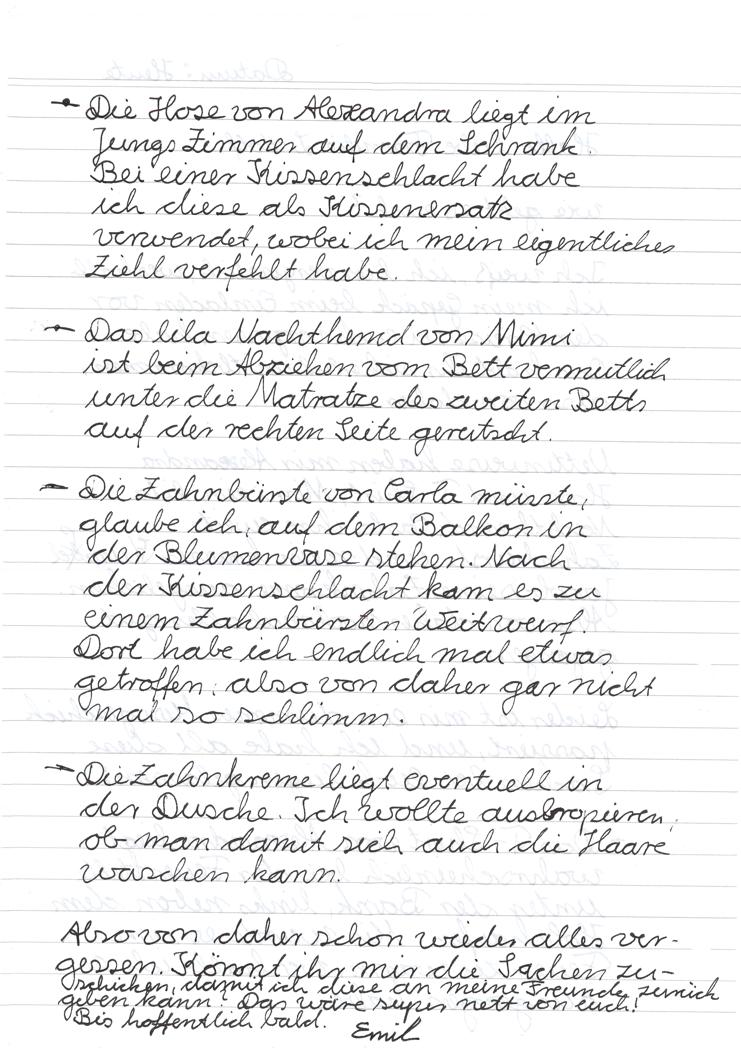 - Die Hose von Alexandra liegt im
Jungs Zimmer auf dem Schrank.
Bei einer Kissenschlacht habe
ich diese als Kissenersatz
verwendet, wobei ich mein eigentliches
Ziehl verfehlt habe.
- Das lila Nachthemd von Mimi
ist beim Abziehen vom Bett vermutlich
unter die Matratze des zweiten Betts
auf der rechten Seite gerutscht.
- Die Zahnbürste von Carla müsste,
glaube ich, auf dem Balkon in
der Blumenvase stehen. Nach
der Kissenschlacht kam es zu
einem Zahnbürsten Weitwurf.
Dort habe ich endlich mal etwas
getroffen, also von daher gar nicht
mal so schlimm.
- Die Zahnkreme liegt eventuell in
der Dusche. Ich wollte ausbropieren,
ob man damit sich auch die Haare
waschen kann.
Also von daher schon wieder alles ver-
gessen. Könnt ihr mir die Sachen zu-
schicken, damit ich diese an meine Freunde zurück
geben kann? Das wäre super nett von euch!
Bis hoffentlich bald. Emil